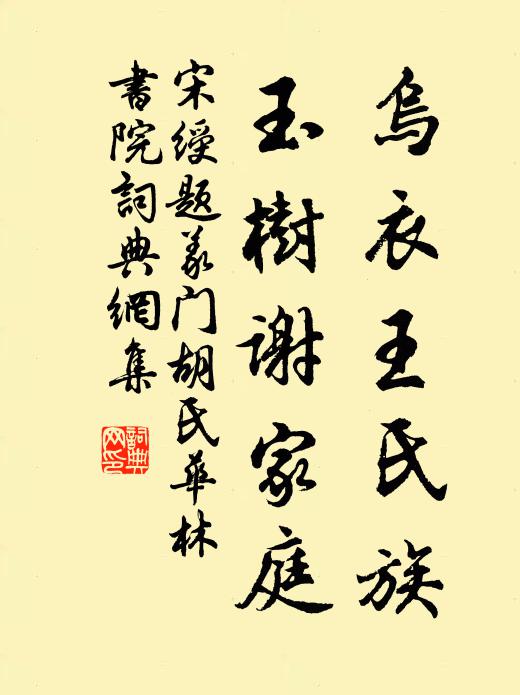 烏衣王氏族
玉樹謝家庭
宋綬題義门胡氏華林
書院詞典網集
詞典网印